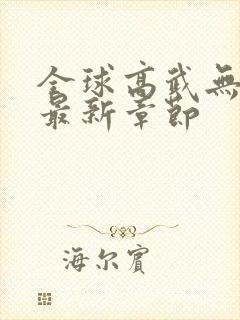 全球高武無
最新章節
海尔賓